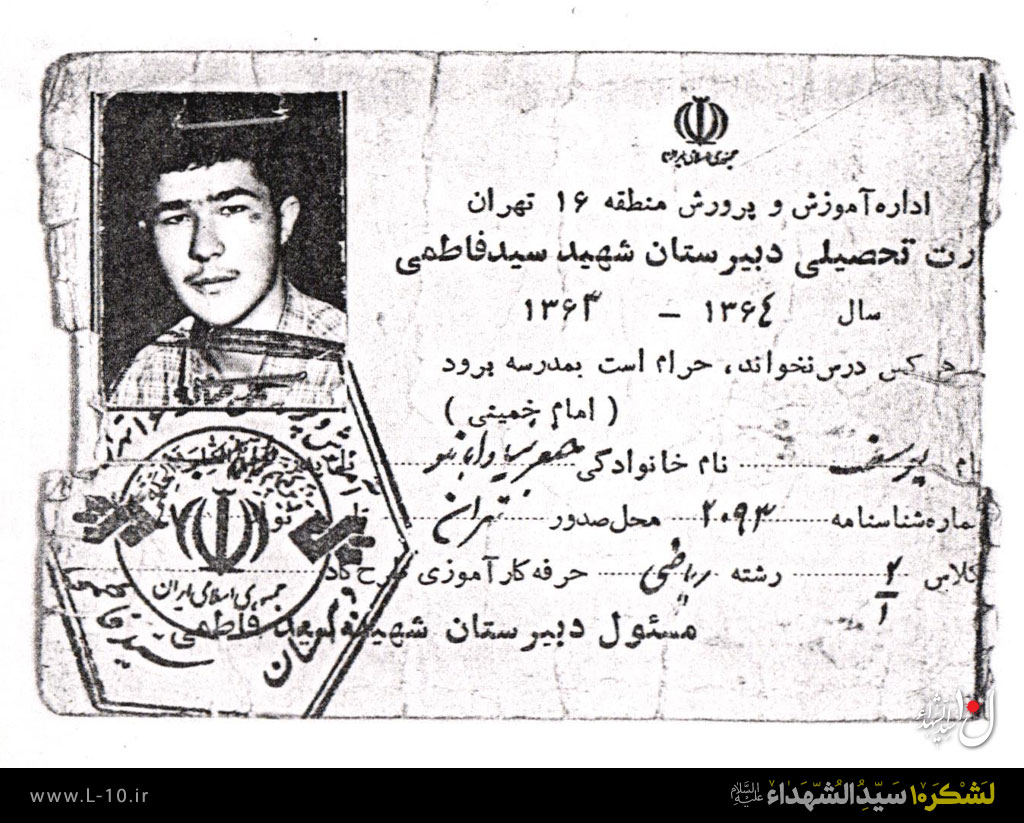 جمهوری اسلامی ایران
اداره آموزش و پرورش منطقه ۱۶ تهران
رت تحصیلی دبیرستان شهید سیدفاطمی
سال ۱۳۶۴ – ۱۳۶۳
کس درس نخواند، حرام است بمدرسه برود
( امام خمینی )
ام یوسف نام خانوادگی جعفر
ماره شناسنامه ۲۰۹۳ محل صدور تهران
کلاس ۲/۱ رشته ریاضی حرفه کارآموزی طرح کاد
مسئول دبیرستان شهید سید فاطمی
جمهوری اسلامی ایران
www.L-10.ir
لَشْکَرِه۱۰ سَیِّدُالشُّهَداءِ علیه‌السلام